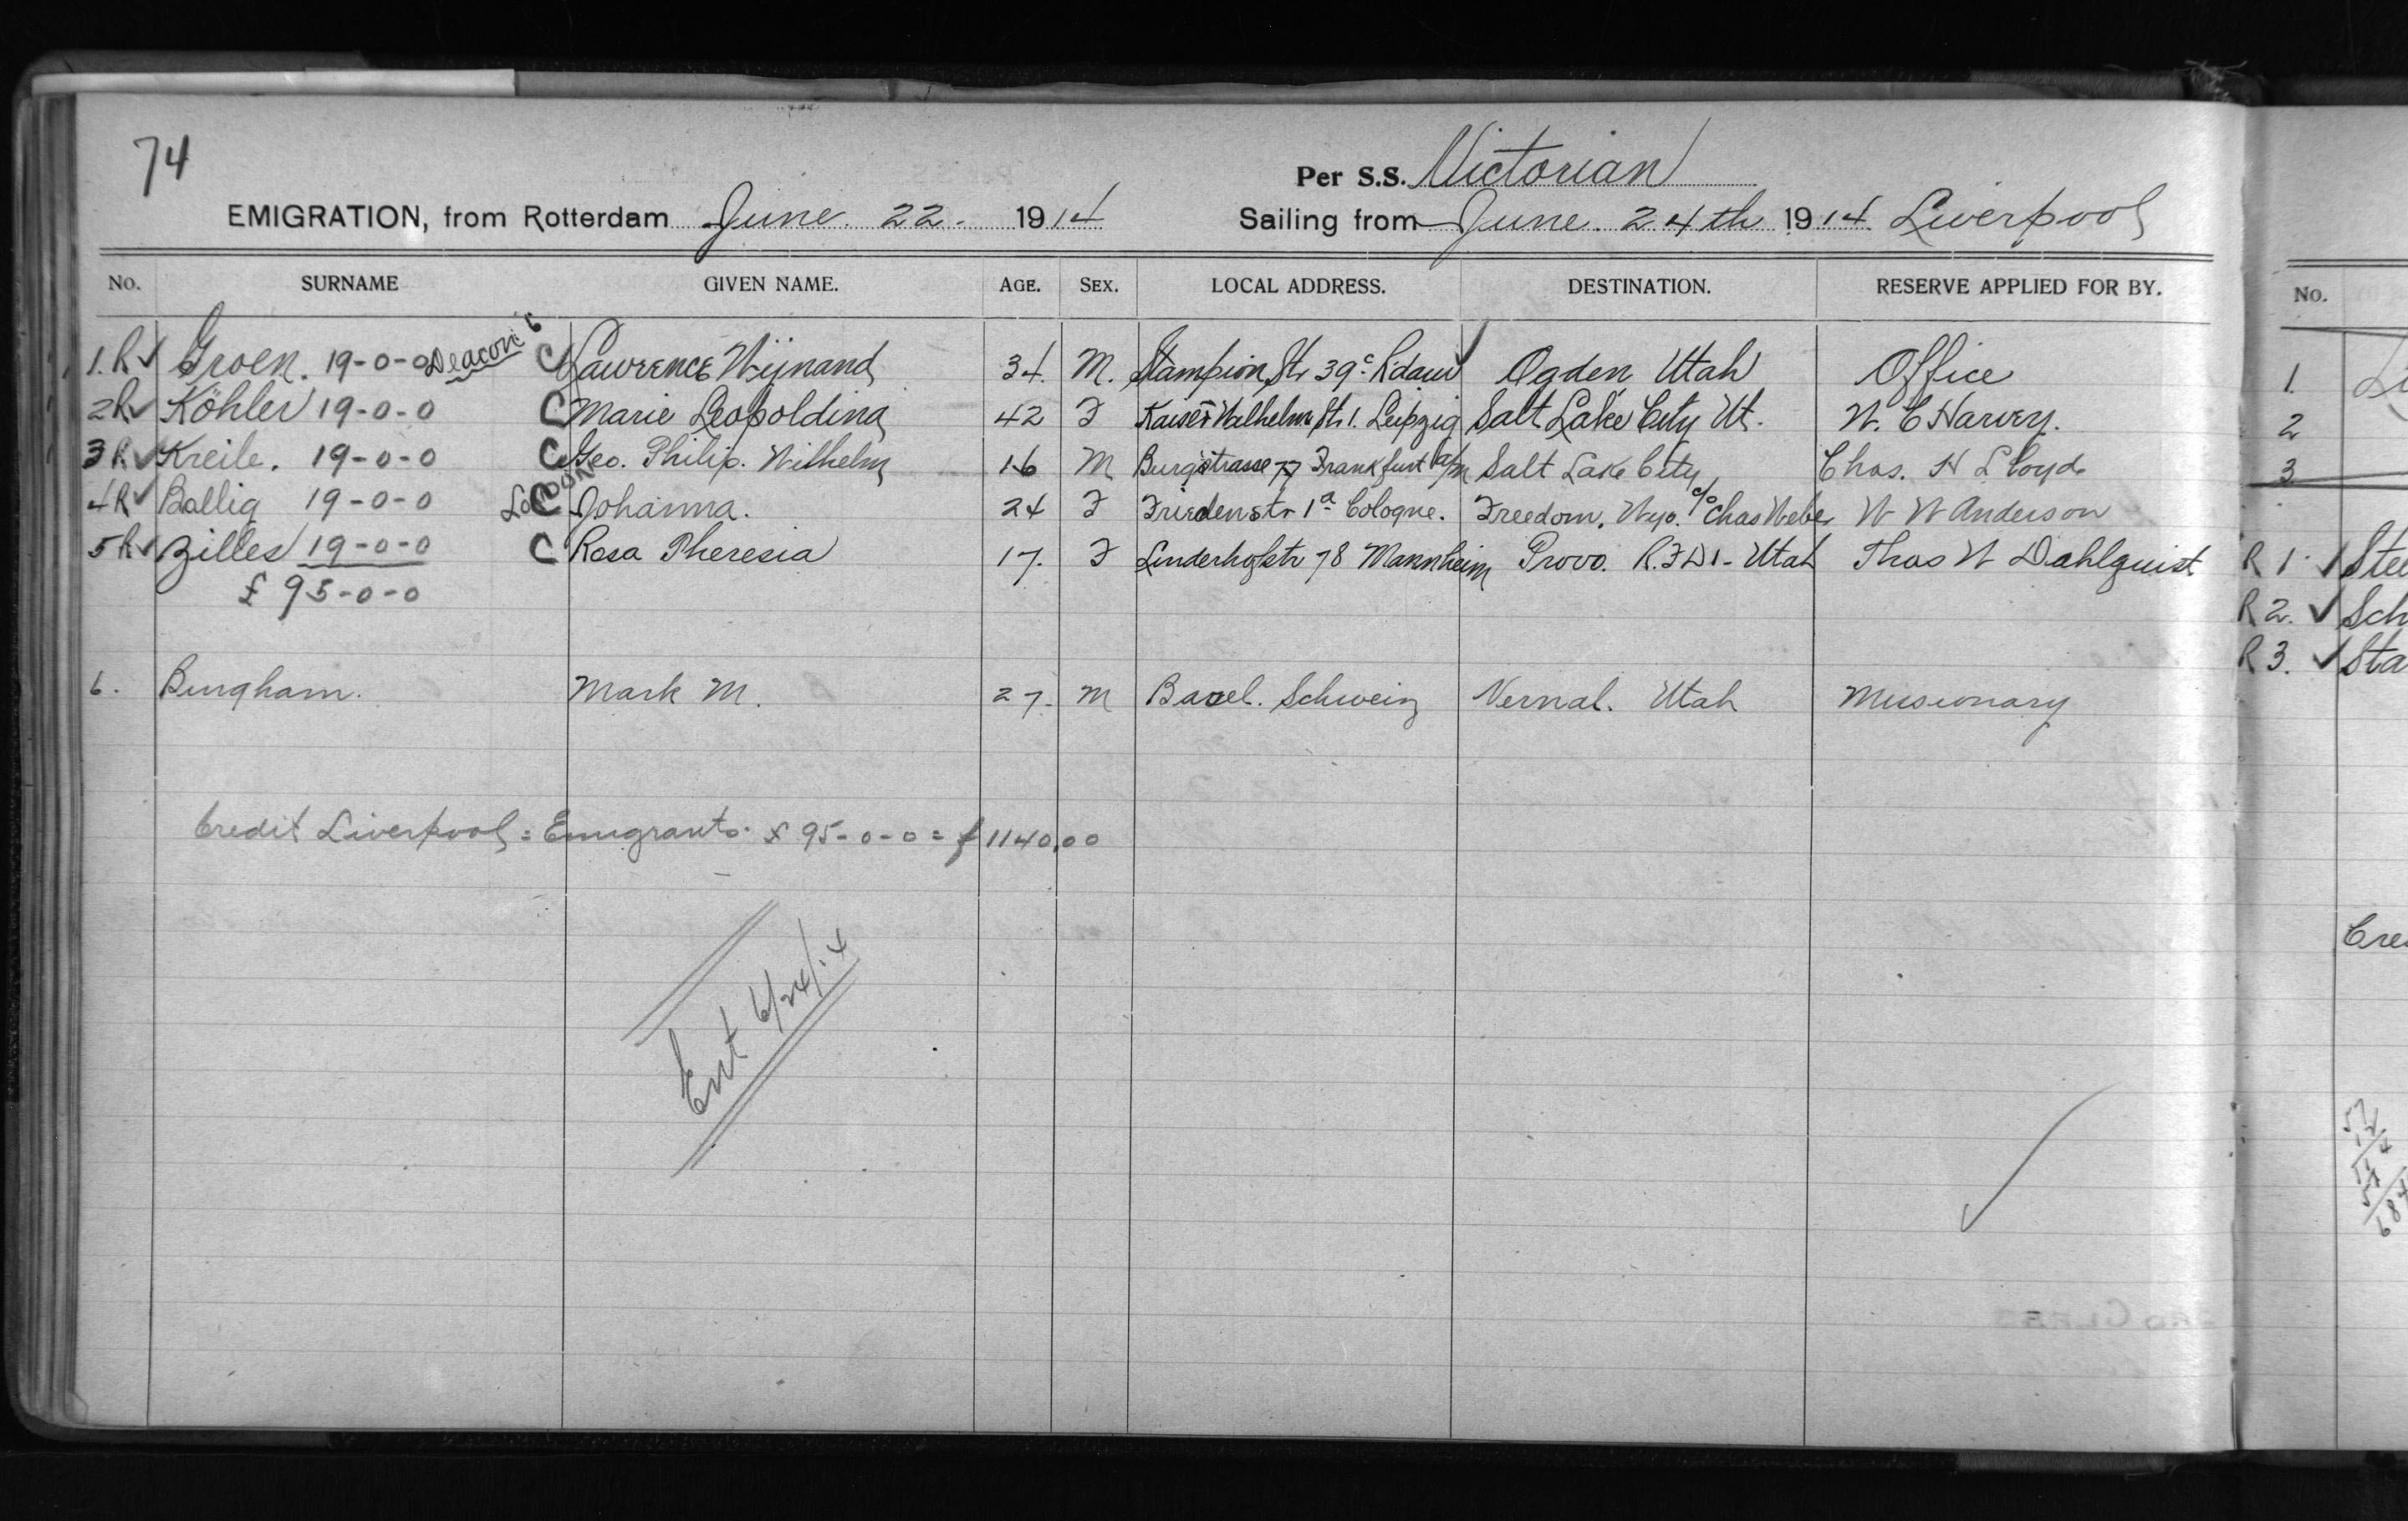 74
Per S.S. Victorian
EMIGRATION, from Rotterdam June. 22. 1914 Sailing from June. 24th 1914. Liverpool
No. SURNAME GIVEN NAME. AGE. SEX. LOCAL ADDRESS. DESTINATION. RESERVE APPLIED FOR BY. No.
1. R ✓ Groen. 19-0-0 Deacon C Lawrence Wijnand 34. M. Stampion Str 39c R'dam Ogden Utah Office 1.
2 R ✓ Köhler 19-0-0 C Marie Leopoldina 42 F Kaiser Wilhelm Str 1. Leipzig Salt Lake City Ut. W. E Harvey. 2
3 R ✓ Kreile. 19-0-0 C Geo. Philip. Wilhelm 16 M Burgstrasse 77 Frankfurt a/m Salt Lake City Chas. H Lloyd 3
4 R ✓ Ballig 19-0-0 London C Johanna. 24 F Friedenstr 1a Cologne. Freedom. Wyo. c/o Chas Weber W W Anderson
5 R ✓ Zilles 19-0-0 C Rosa Theresia 17. F Linderhofstr 78 Mannheim Provo. R.F.D 1- Utah Thos W Dahlquist R 1. ✓ Stee
£ 95-0-0 R 2. ✓ Sch
R 3. ✓ Sta
6. Bingham. Mark M. 27. M Basel. Schweiz Vernal. Utah Missionary
Credit Liverpool = Emigrants. £ 95-0-0 = f 1140,00
Cre
Ent 6/24/14